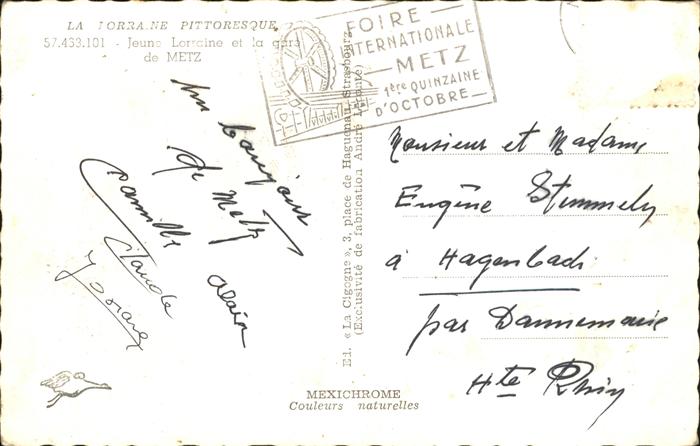 LA LORRAINE PITTORESQUE
57.463.101 - Jeune Lorraine et la gare
de METZ
FOIRE
INTERNATIONALE
METZ
1ère QUINZAINE
D'OCTOBRE
Un bonjour
de Metz
Camille
Claude
Alain
Josiane
Ed. « La Cigogne », 3, place de Haguenau, Strasbourg
(Exclusivité de fabrication André Leconte)
Monsieur et Madame
Eugène Stemmelin
à Hagenbach
par Dannemarie
Hte Rhin
MEXICHROME
Couleurs naturelles